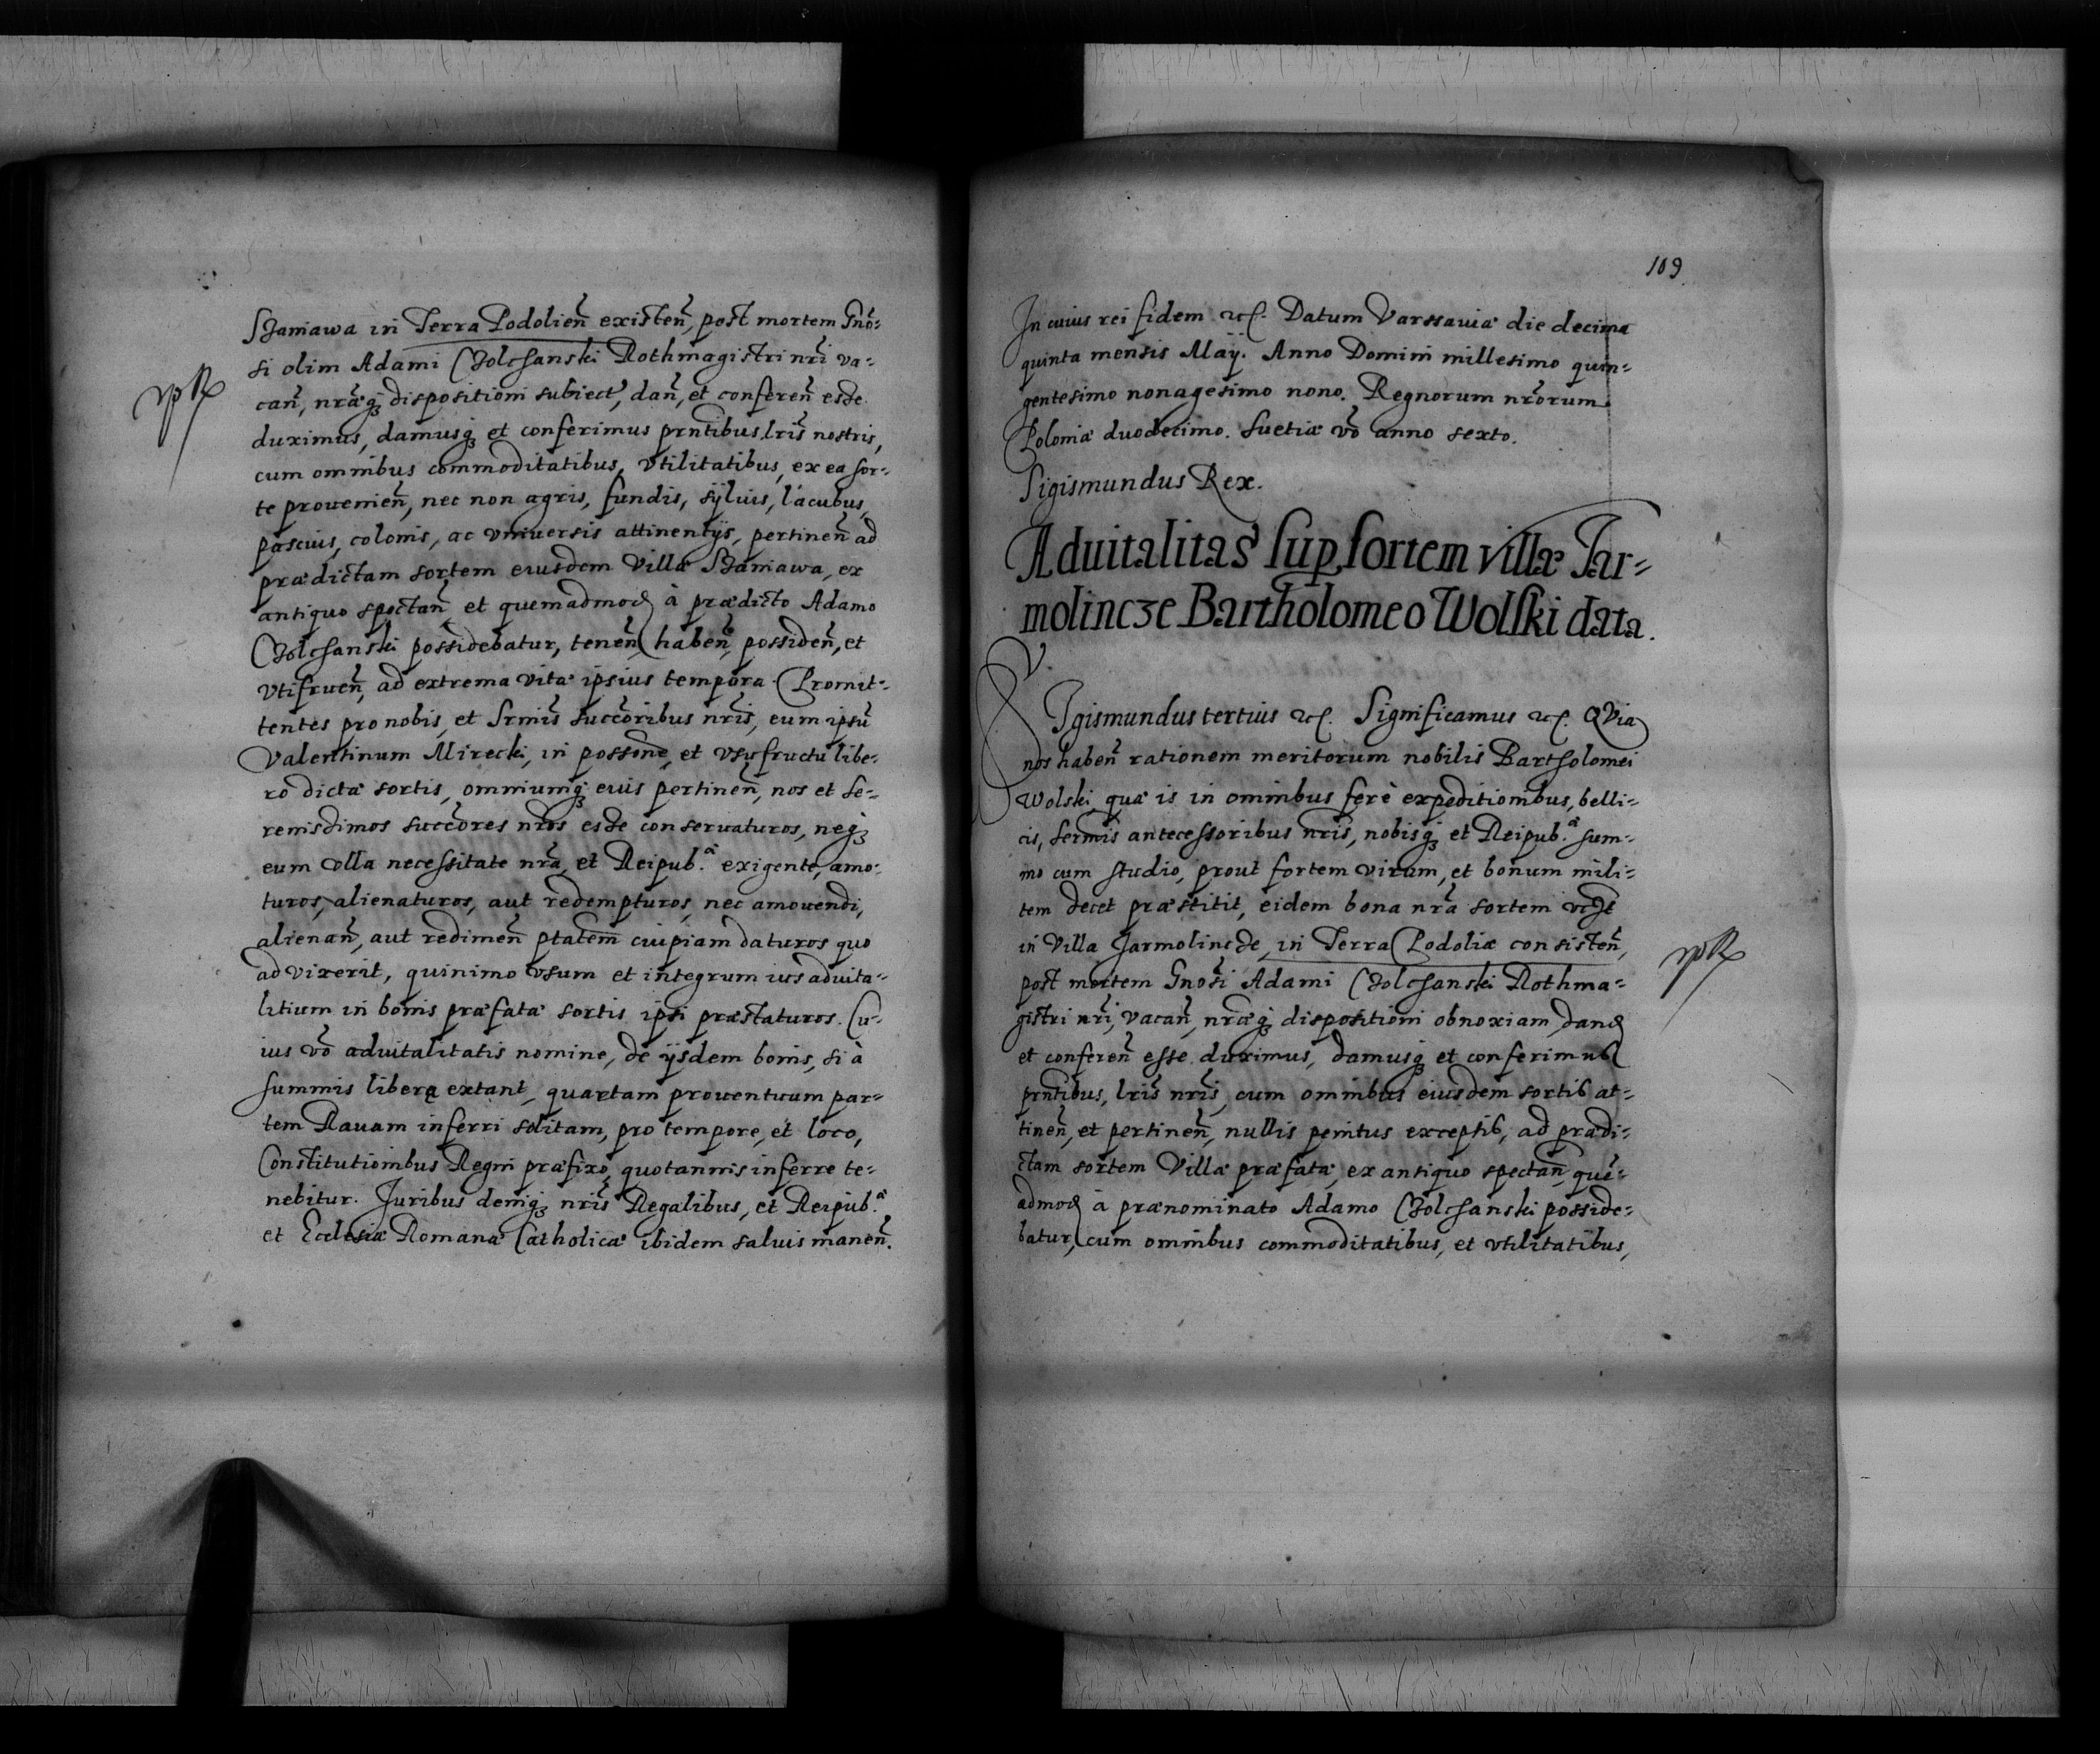 Staniawa in Terra Podolień existeń, post mortem Gnō-
si olim Adami Cholehanski Rothmagistri nri va-
cań, nræq; dispositioni subiect, dań, et confereń esse
duximus, damusq; et conferimus prntibus lris nostris,
cum omnibus commoditatibus, vtilitatibus, ex ea sor-
te prouenień, nec non agris, fundis, syluis, lacubus,
pascuis, colonis, ac vniuersis attinentijs, pertineń ad
prædictam sortem eiusdem Villæ Staniawa, ex
antiquo spectań, et quemadmod à prædicto Adamo
Cholehanski possidebatur, teneń, habeń, possideń, et
vtifrueń, ad extrema vitæ ipsius tempora. Promit-
tentes pro nobis, et Srmis succoribus nris, eum ipsū
Valentinum Mirecki, in possone, et vsufructu libe-
ro dictæ sortis, omniumq; eius pertineń, nos et Se-
renissimos succores nros esse conseruaturos, neq;
eum vlla necessitate nra, et Reipub.æ exigente, amo-
turos, alienaturos, aut redempturos, nec amouendi,
alienań, aut redimeń ptatem cuipiam daturos quo
ad vixerit, quinimo vsum et integrum ius aduita-
litium in bonis præfatæ sortis ipsi præstaturos. Cu-
ius vō aduitalitatis nomine, de ijsdem bonis, si à
summis libera extant, quartam prouentuum par-
tem Rauam inferri solitam, pro tempore, et loco,
Constitutionibus Regni præfixo, quotannis inferre te-
nebitur. Juribus deniq; nris Regalibus, et Reipub.æ
et Ecclesiæ Romanæ Catholicæ ibidem saluis maneń.
109
In cuius rei fidem etc. Datum Varssauiæ die decima
quinta mensis Maij. Anno Domini millesimo quin-
gentesimo nonagesimo nono. Regnorum nrorum
Poloniæ duodecimo. Suetiæ vō anno sexto.
Sigismundus Rex.
Aduitalitas sup sortem villæ Jar-
molincze Bartholomeo Wolski data.
Sigismundus tertius etc. Significamus etc. Quia
nos habeń rationem meritorum nobilis Bartholomei
Wolski, quæ is in omnibus ferè expeditionibus, belli-
cis, sermis antecessoribus nris, nobisq; et Reipub.æ sum-
mo cum studio, prout fortem virum, et bonum mili-
tem decet præstitit, eidem bona nra sortem vczt
in Villa Jarmolincze, in Terra Podoliæ consisteń,
post mortem Gnosi Adami Cholehanski Rothma-
gistri nri, vacań, nræq; dispositioni obnoxiam, dand
et confereń esse duximus, damusq; et conferimus
prntibus, lris nris, cum omnibus eiusdem sortis at-
tineń, et pertineń, nullis penitus exceptis, ad prædi-
ctam sortem Villæ præfatæ, ex antiquo spectań, quē-
admod à prænominato Adamo Cholehanski posside-
batur, cum omnibus commoditatibus, et vtilitatibus,